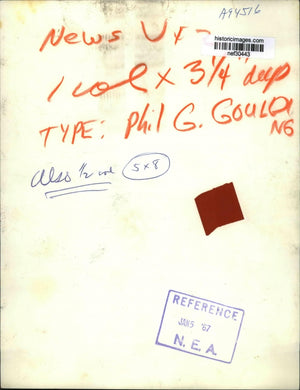 A94516
historicimages.com
nef30443
News
1 col x 3 1/4" deep
TYPE: Phil G. GOULDING
Also 1/2 col 5x8
REFERENCE
JAN 5 '67
N.E.A.